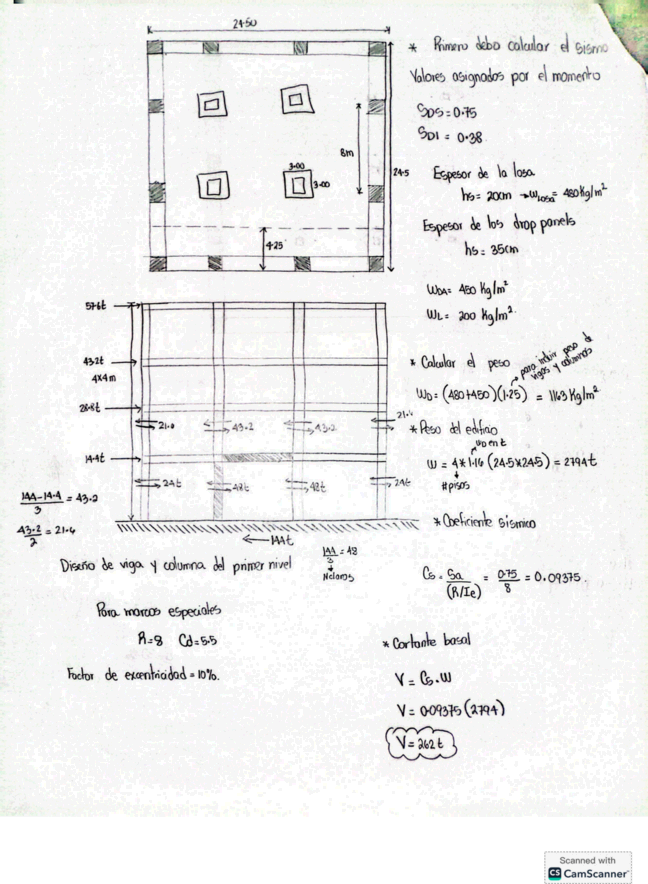 24.50
* Primero debo calcular el sismo
Valores asignados por el momento
SDS = 0.75
SD1 = 0.38
8m
3.00
3.00
24.5
4.25
Espesor de la losa
hs = 20cm → Wlosa = 480 Kg/m²
Espesor de los drop panels
hs = 35cm
WDA = 450 Kg/m²
WL = 200 Kg/m²
57.6t
43.2t
4x4m
28.8t
21.6
43.2
43.2
14.4t
24t
48t
48t
24t
144t
* Calcular el peso
para incluir peso de
vigas y columnas
WD = (480+450)(1.25) = 1163 Kg/m²
* Peso del edificio
WD en t
W = 4*1.16 (24.5*24.5) = 2794 t
#pisos
144-14.4 / 3 = 43.2
43.2 / 2 = 21.6
* Coeficiente sísmico
Cs = Sa / (R/Ie) = 0.75 / 8 = 0.09375
Diseño de viga y columna del primer nivel
144 / 3 = 48
Para marcos especiales
R=8 Cd=5.5
Factor de excentricidad = 10%.
* Cortante basal
V = Cs.W
V = 0.09375 (2794)
V = 262 t
Scanned with
CS CamScanner